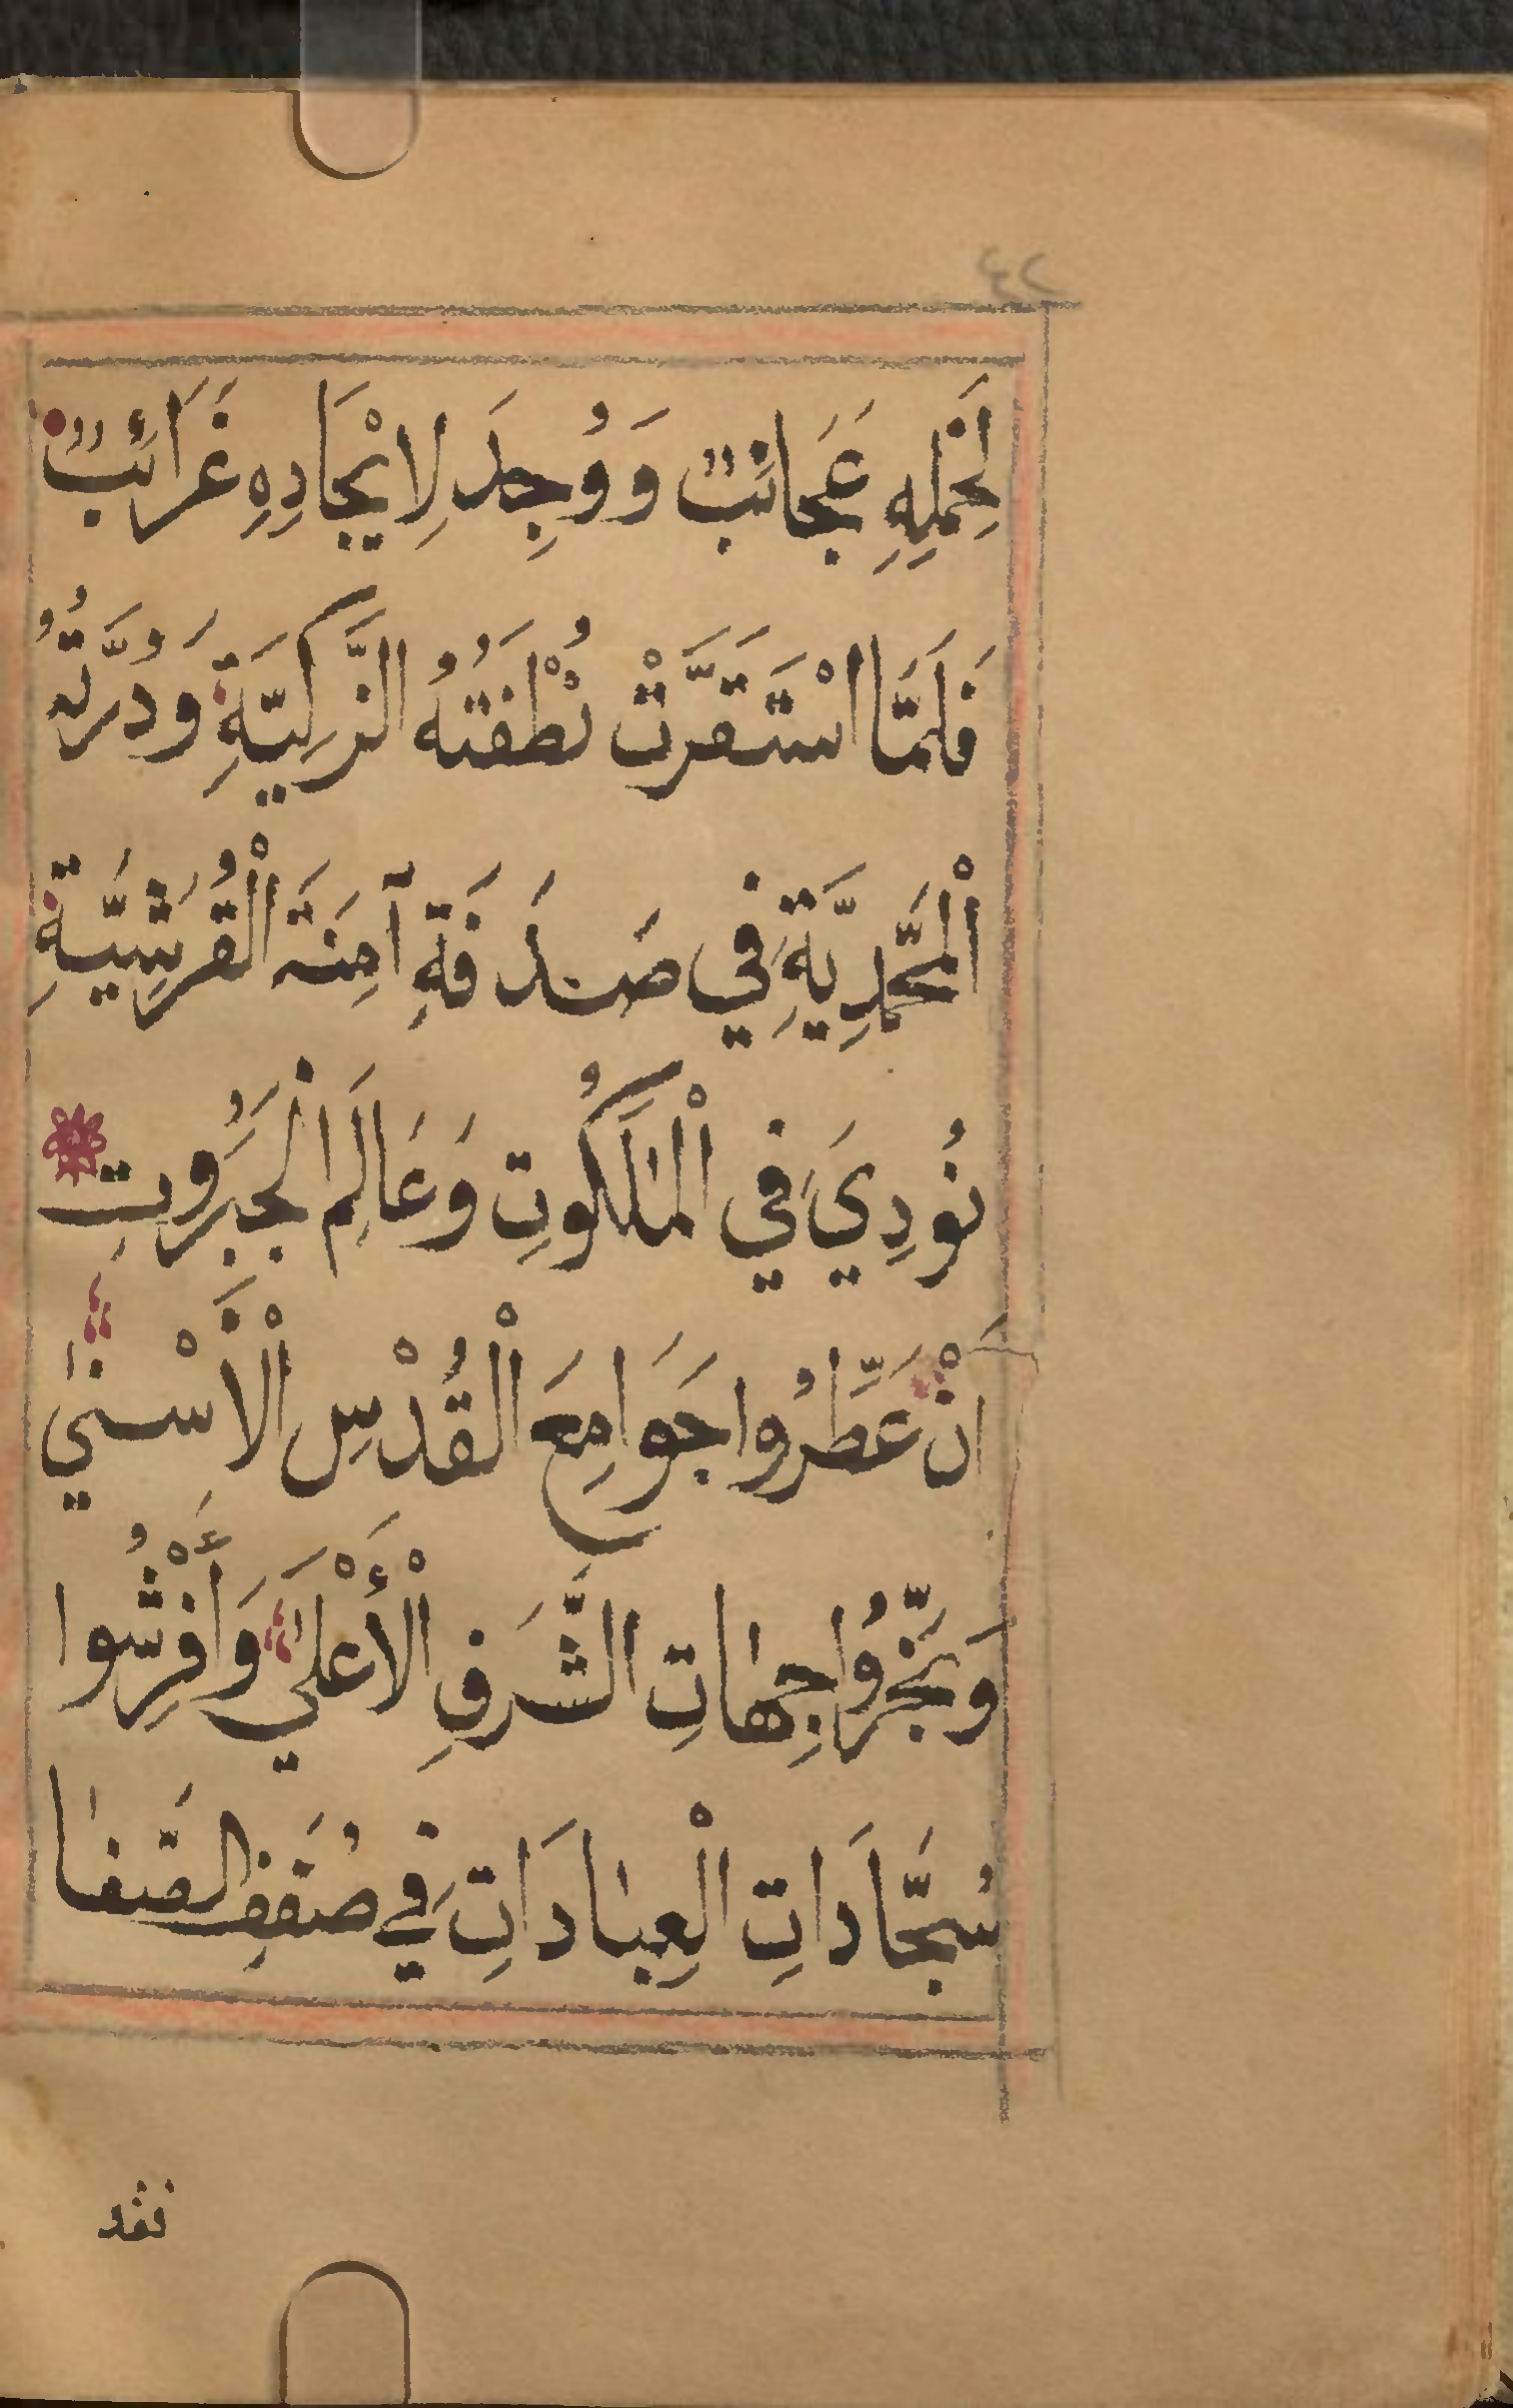 ٤٢
لِحَمْلِهِ عَجَائِبٌ وَوُجِدَ لِايْجَادِهِ غَرَائِبٌ
فَلَمَّا اسْتَقَرَّتْ نُطْفَتُهُ الزَّكِيَّةِ وَدُرَّتُهُ
الْمُحَمَّدِيَّةِ فِي صَدَفَةِ آمِنَةَ الْقُرَشِيَّةِ
نُودِيَ فِي الْمَلَكُوتِ وَعَالَمِ الْجَبَرُوتِ
انْ عَطِّرُوا جَوَامِعَ الْقُدْسِ الْأَسْنٰي
وَبَخِّرُوا جِهٰاتِ الشَّرَفِ الْأَعْلٰي وَأَفْرِشُوا
سُجَّادَاتِ الْعِبٰادَاتِ فِي صُفَفِ الصَّفٰا